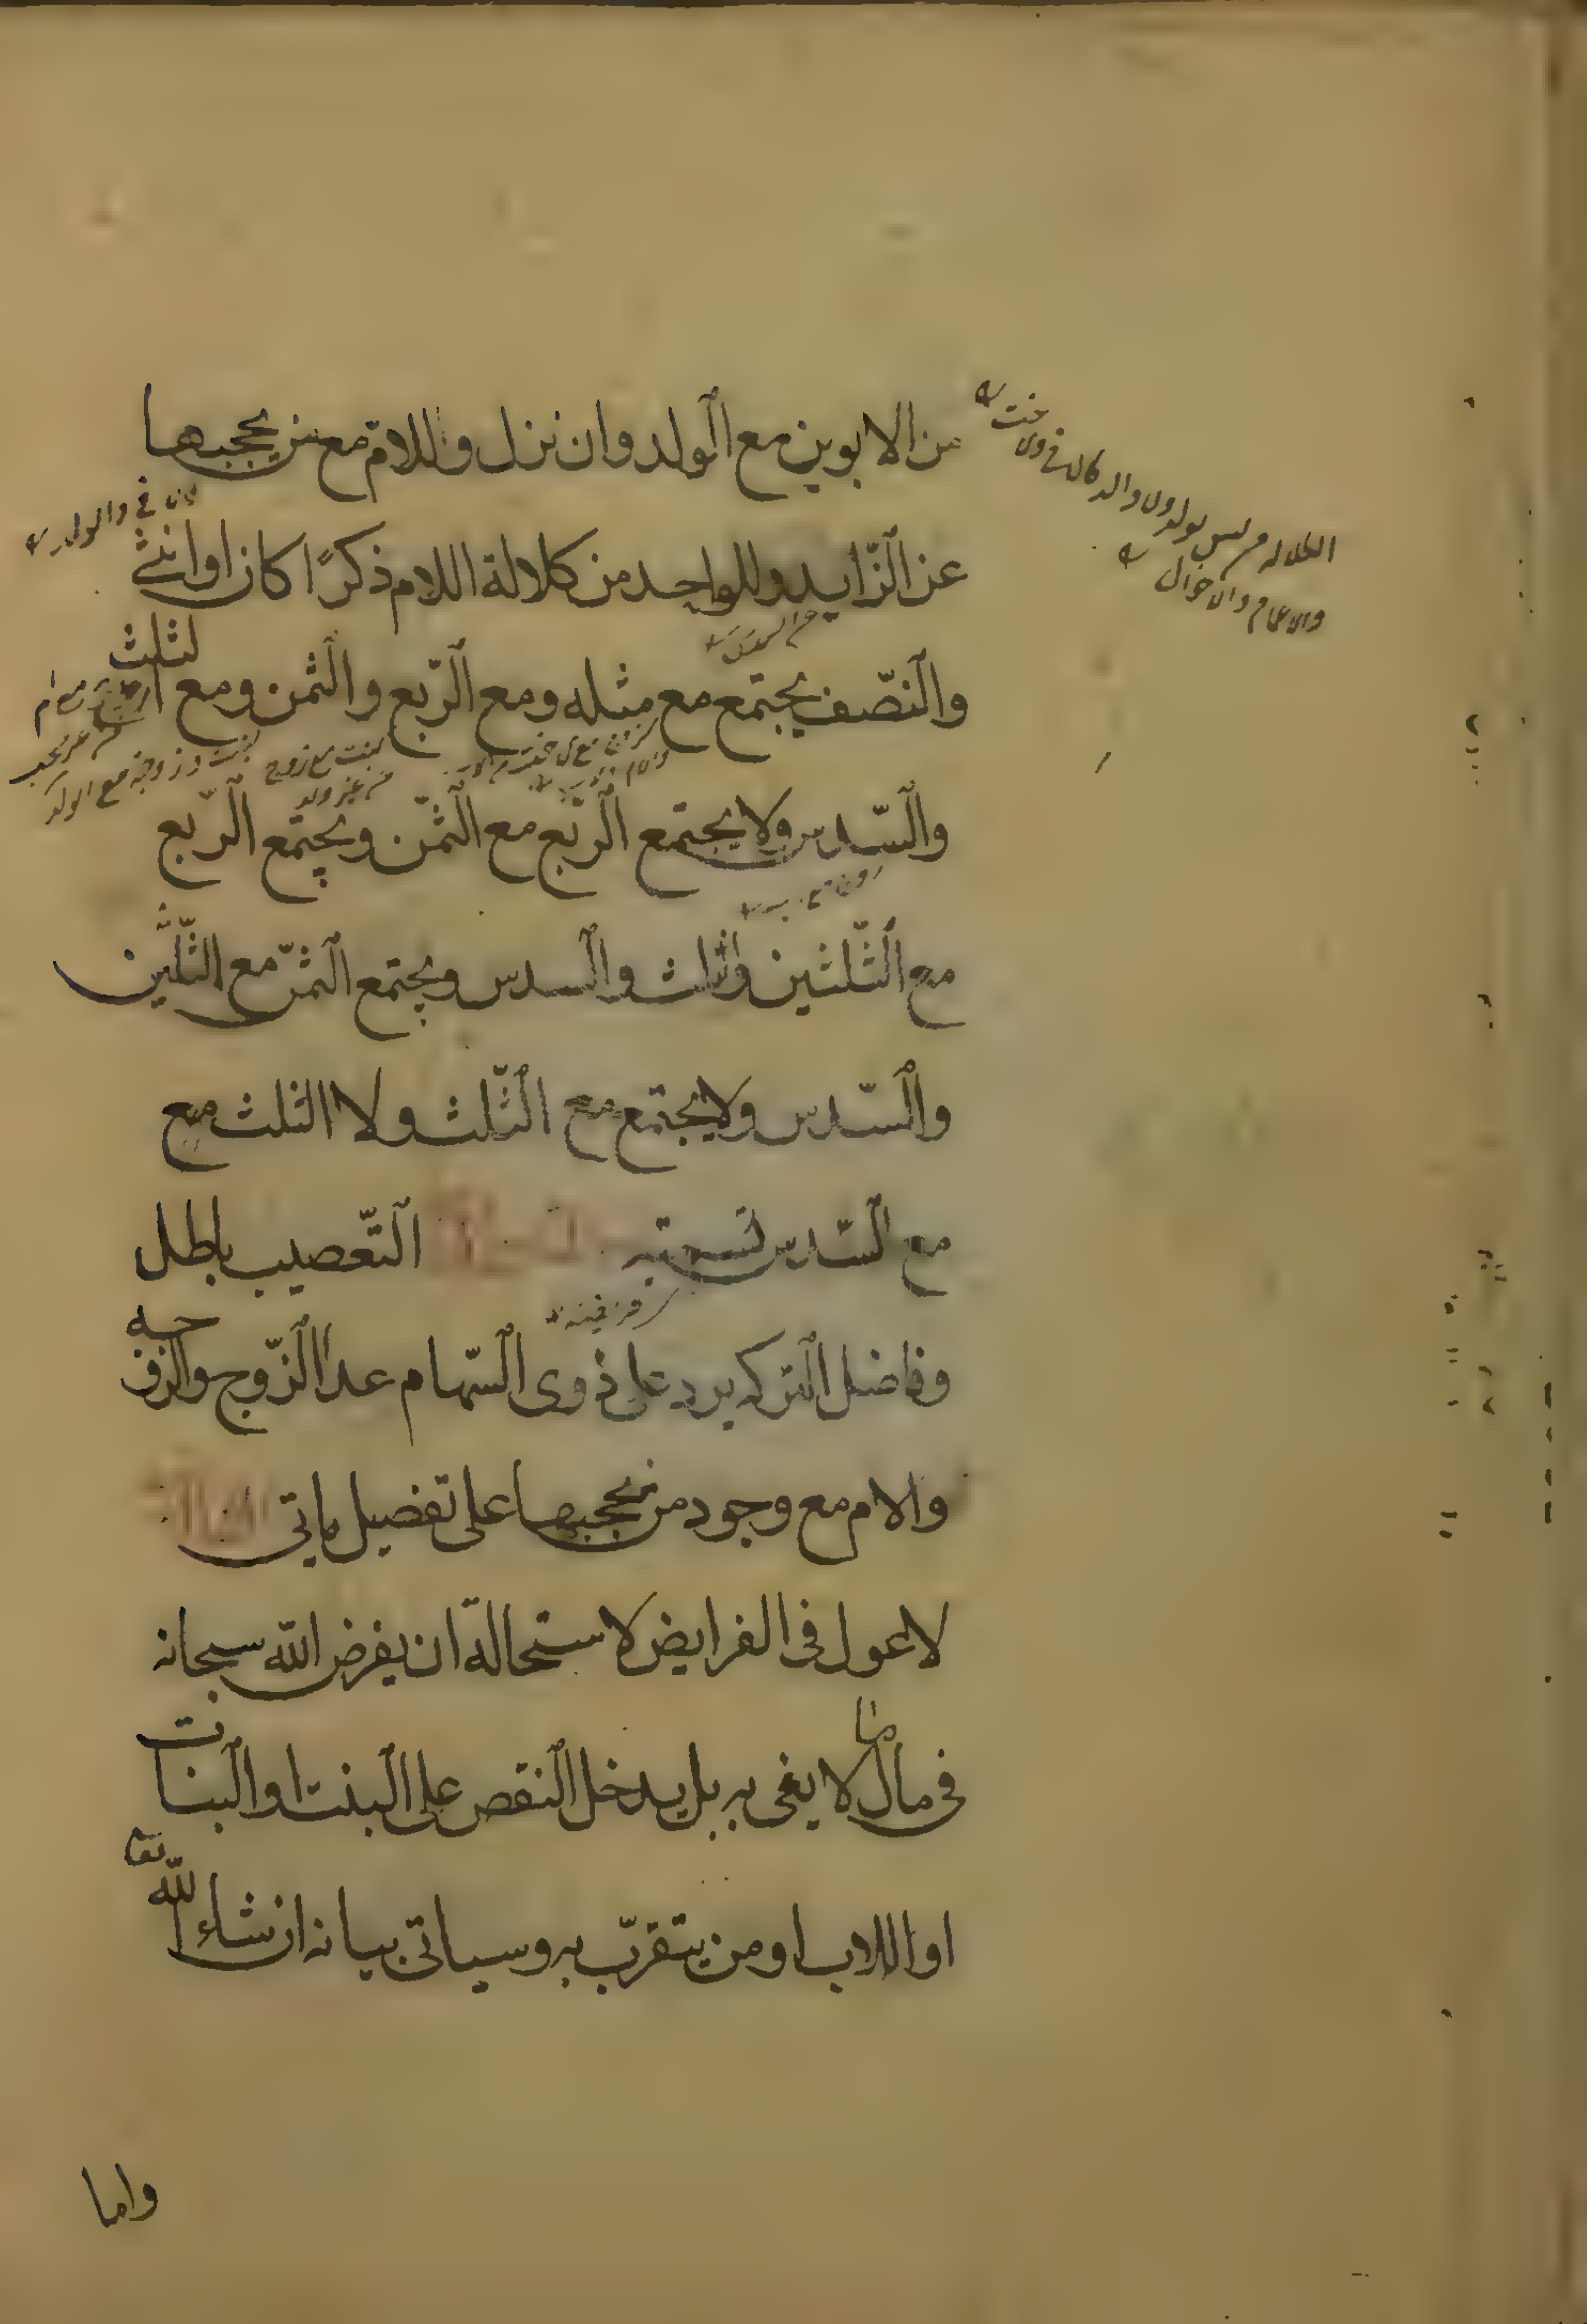 من الابوين مع الولد وان نزل وللام مع من يحجبها
عن الزايد وللواحد من كلالة اللام ذكرًا كان او انثى
والنصف يجتمع مع مثله ومع الربع والثمن ومع الثلث
والسدس ولا يجتمع الربع مع الثمن ويجتمع الربع
مع الثلثين والثلث والسدس ويجتمع الثمن مع الثلثين
والسدس ولا يجتمع مع الثلث ولا الثلث مع
مع السدس تسمية التعصيب باطل
وفاضل التركه يرد على ذوى السهام عدا الزوج والزوجه
والام مع وجود من يحجبها على تفضيل ياتى
لا عول فى الفرايض لاستحالة ان يفرض الله سبحانه
فى مال ما لا يفى به بل يدخل النقص على البنت او البنات
او اللاب او من يتقرب به وسياتى بيانه ان شاء الله تعا
واما
الكلاله من ليس بولد ولا والد
والاعمام والاخوال